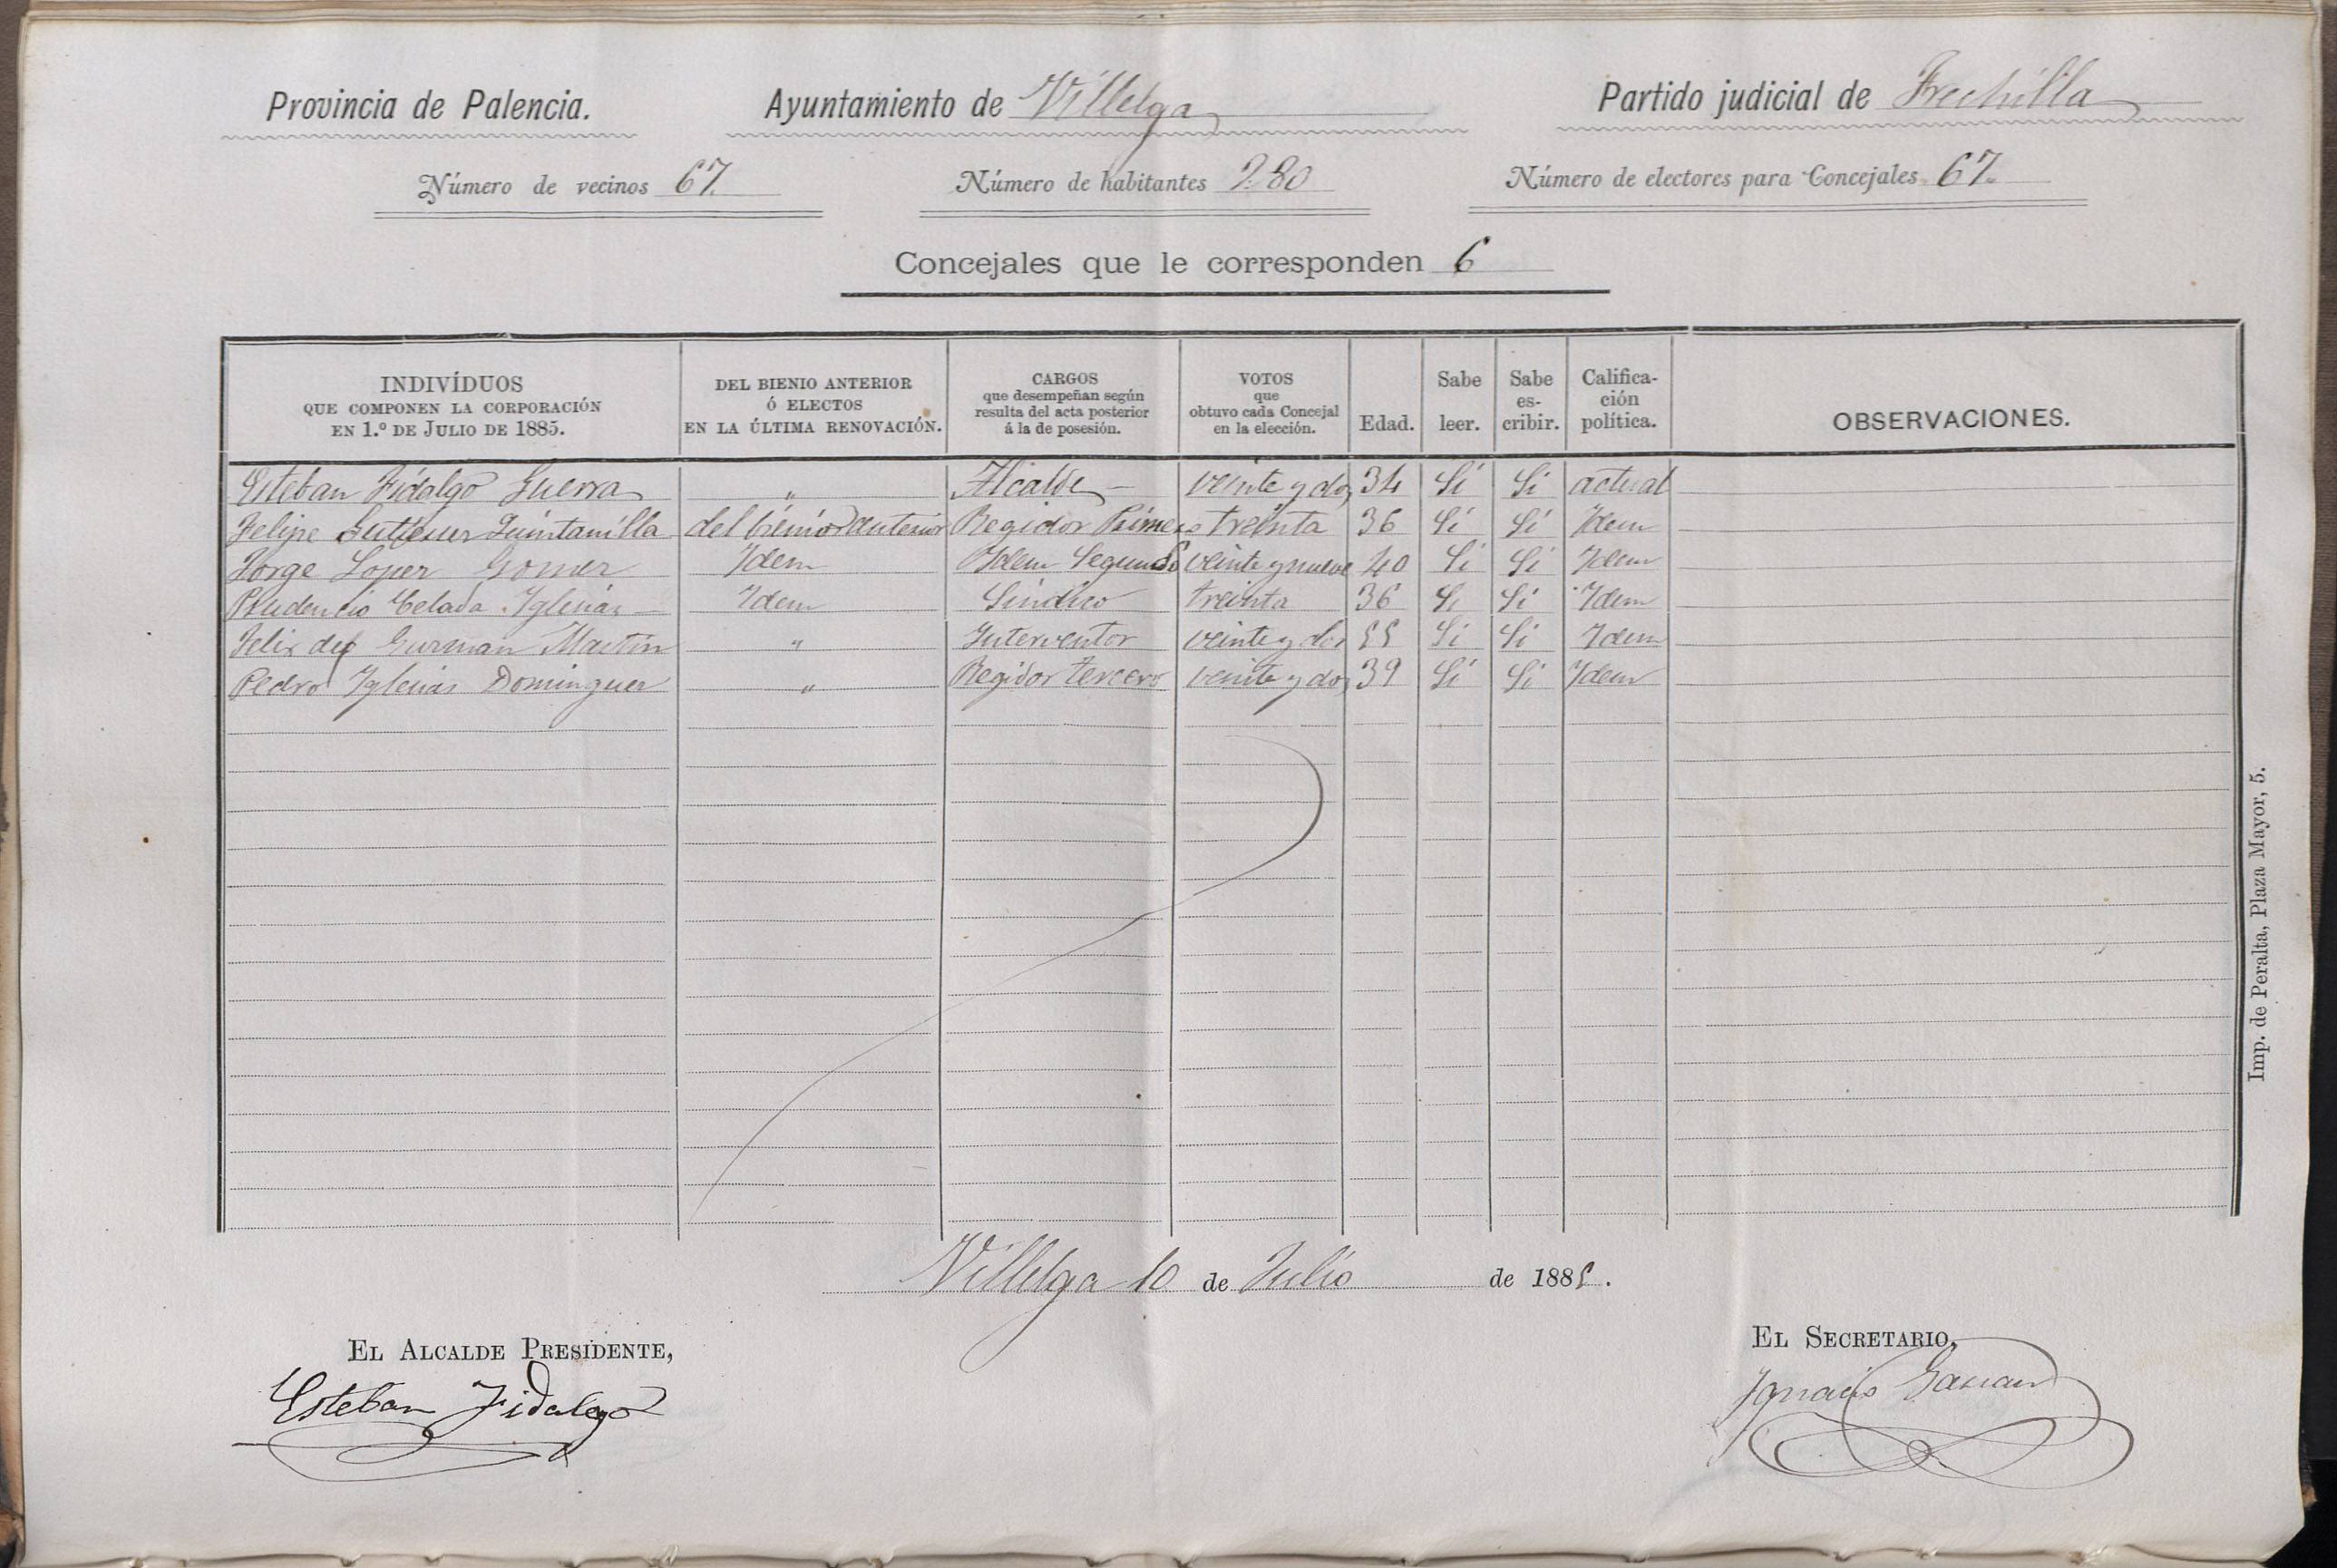 Provincia de Palencia. Ayuntamiento de Villelga Partido judicial de Frechilla
Número de vecinos 67 Número de habitantes 280 Número de electores para Concejales 67
Concejales que le corresponden 6
INDIVÍDUOS QUE COMPONEN LA CORPORACIÓN EN 1.º DE JULIO DE 1885. DEL BIENIO ANTERIOR Ó ELECTOS EN LA ÚLTIMA RENOVACIÓN. CARGOS que desempeñan según resulta del acta posterior á la de posesión. VOTOS que obtuvo cada Concejal en la elección. Edad. Sabe leer. Sabe es-cribir. Califica-ción política. OBSERVACIONES.
Esteban Fidalgo Guerra " Alcalde veinte y dos 34 Si Si actual
Felipe Gutierrez Quintanilla del bienio anterior Regidor Primero treinta 36 Si Si Idem
Jorge Lopez Gomez Idem Idem Segundo veinte y nueve 40 Si Si Idem
Prudencio Celada Iglesias Idem Sindico treinta 36 Si Si Idem
Felix de Guzman Martin " Interventor veinte y dos 55 Si Si Idem
Pedro Iglesias Dominguez " Regidor tercero veinte y dos 39 Si Si Idem
Villelga 10 de Julio de 1885.
EL ALCALDE PRESIDENTE, EL SECRETARIO,
Esteban Fidalgo Ignacio
Imp. de Peralta, Plaza Mayor, 5.